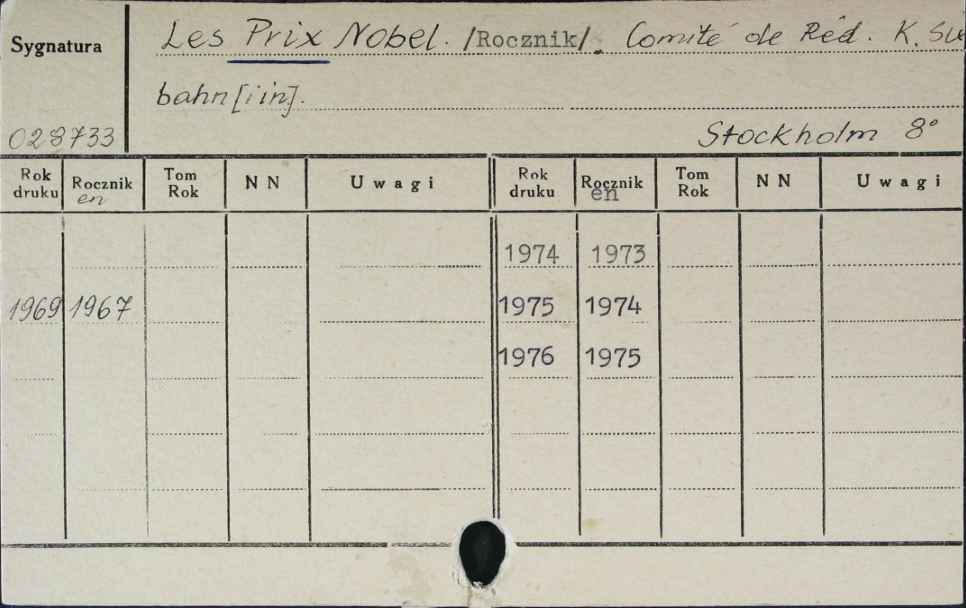 Sygnatura
Les Prix Nobel. /Rocznik/. Comité de Réd. K. Sie
bahn [i in].
028733
Stockholm 8°
Rok druku Rocznik en Tom Rok NN Uwagi Rok druku Rocznik en Tom Rok NN Uwagi
1974 1973
1969 1967 1975 1974
1976 1975